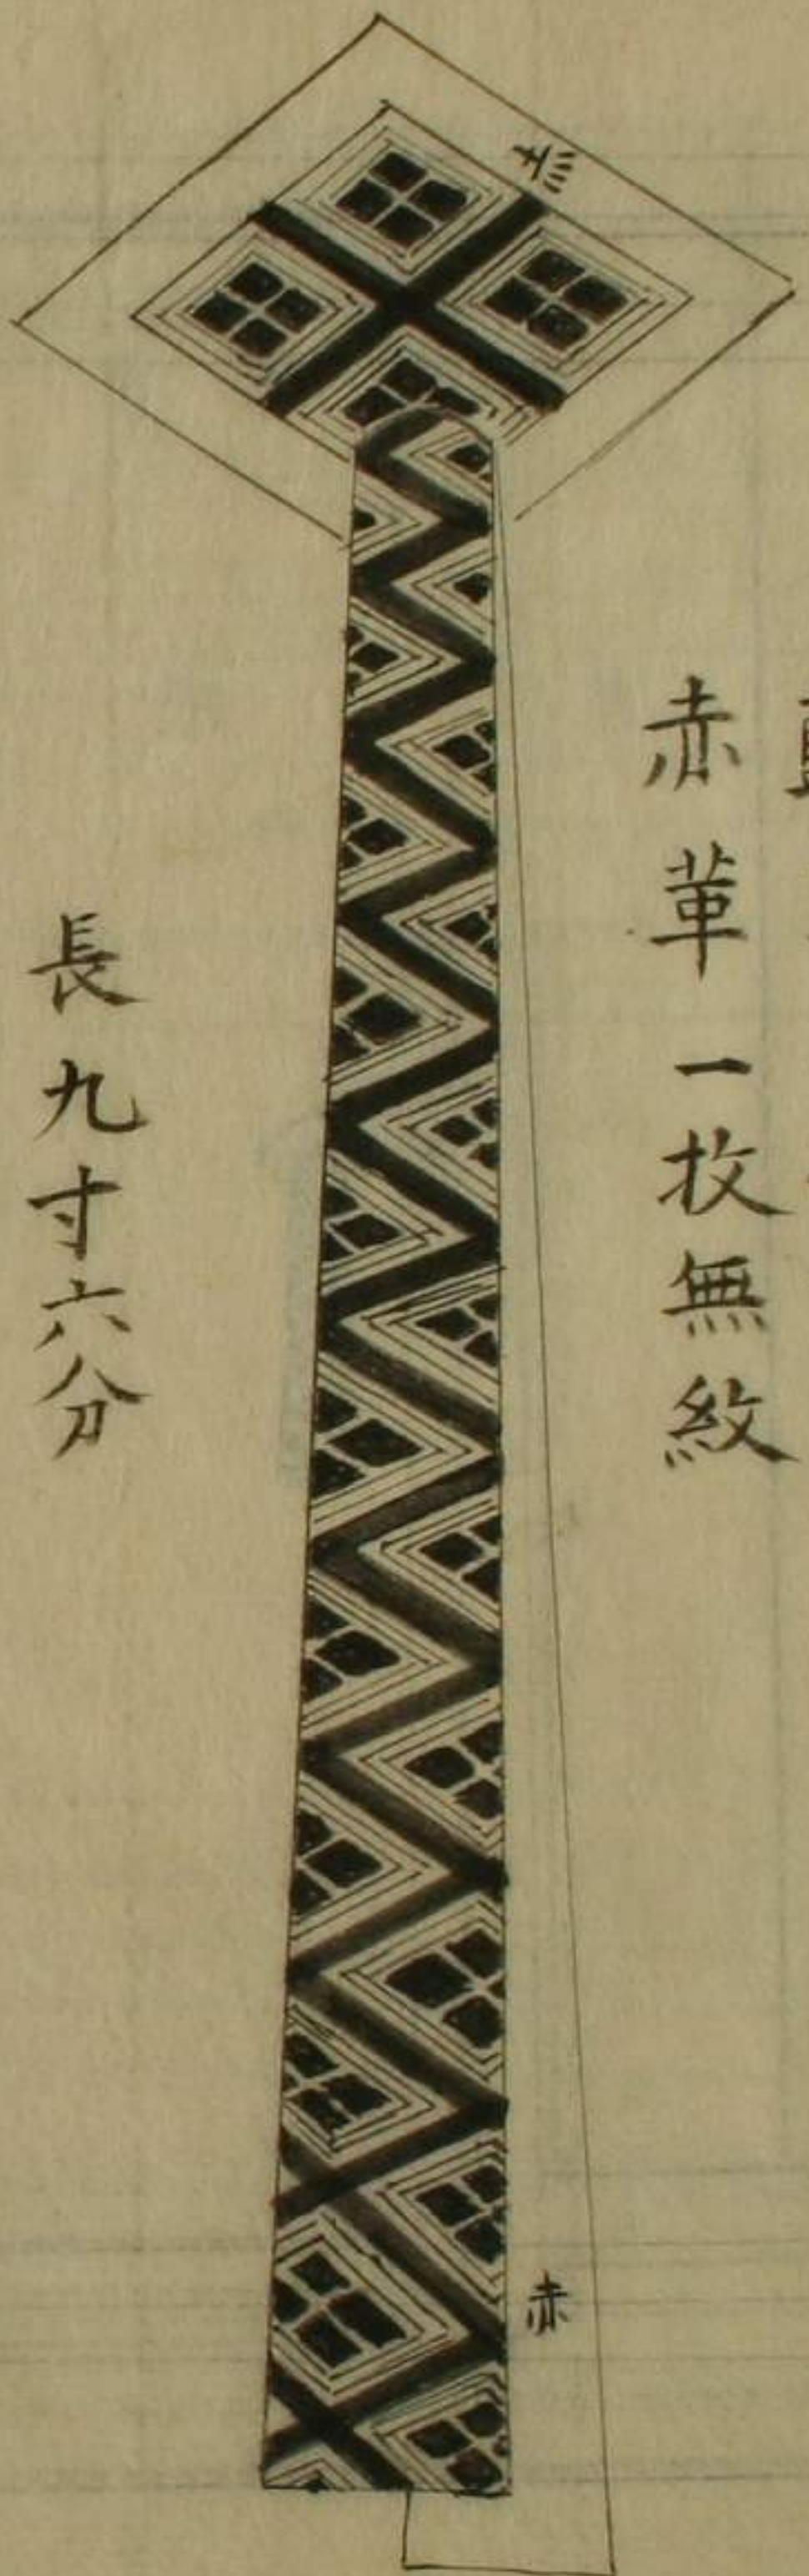 赤革一枚無紋
長九寸六分
赤
赤